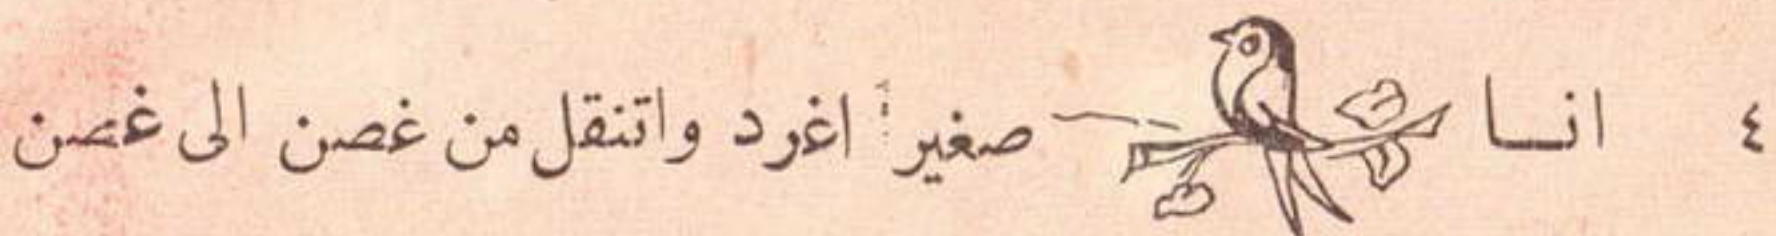 ٤ انــا صغير اغرد واتنقل من غصن الى غصن